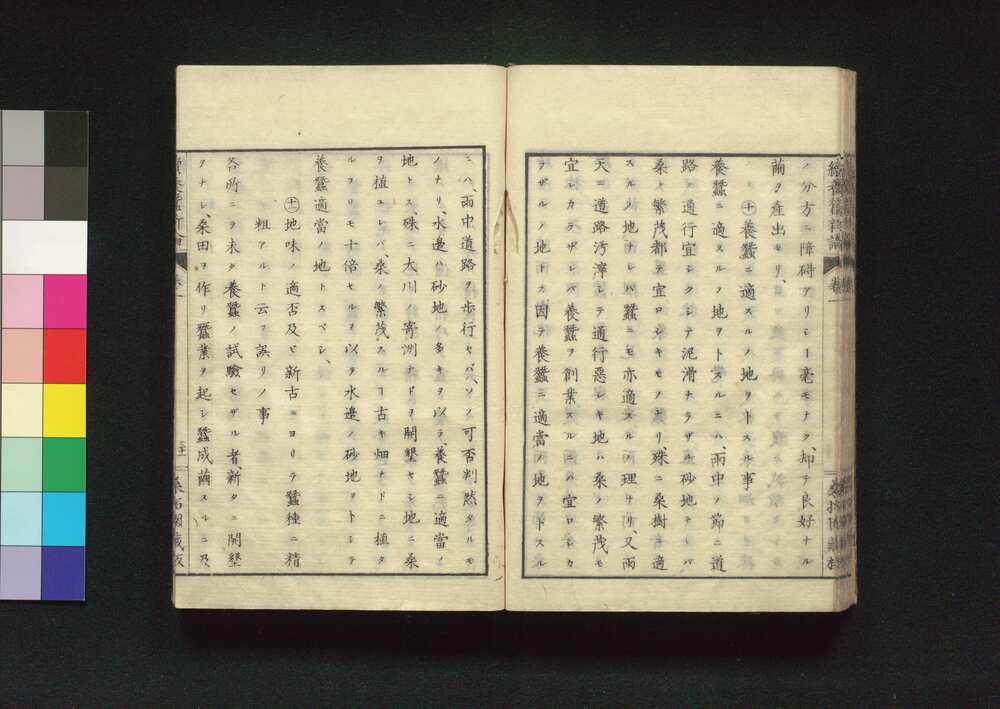 ノ分方ニ障碍アリシー毫モナク、却テ良好ナル
繭ヲ産出セリ、
㊉養蠶ニ適スルノ地ヲトスル事
養蠶ニ適スルノ地ヲトスルニハ、雨中ノ節ニ道
路ノ通行宜シクシテ泥滑ナラザル砂地ナレバ
桑ノ繁茂都テ宜ロシキモノナリ、殊ニ桑樹ニ適
スルノ地ナレバ蠶ニモ亦適スルノ理ナリ、又雨
天ニ道路汚濘シテ通行惡シキ地ハ桑ノ繁茂モ
宜シカラザレバ養蠶ヲ創業スルニハ宜ロシカ
ラザルノ地トス、因テ養蠶ニ適當ノ地ヲトスル
ニハ、雨中道路ヲ歩行セバ、ソノ可否判然タルモ
ノナリ、水邊ハ砂地ノ多キヲ以テ、養蠶ニ適當ノ
地トス、殊ニ大川ノ寄洲ナドヲ開墾セシ地ニ桑
ヲ植ユレバ、桑ノ繁茂スルヿ古キ畑ナドニ植タ
ルヨリモ十倍セルヲ以タ水邊ノ砂地ヲトシテ
養蠶適當ノ地トスベシ、
㊉一地味ノ適否及ビ新古ニヨリテ蠶種ニ精
粗アルト云フ誤リノ事
各所ニヲ未タ養蠶ノ試驗セザル者、新タニ開墾
ヲナシ、桑田ヲ作リ蠶業ヲ起シ蠶成繭スルニ及